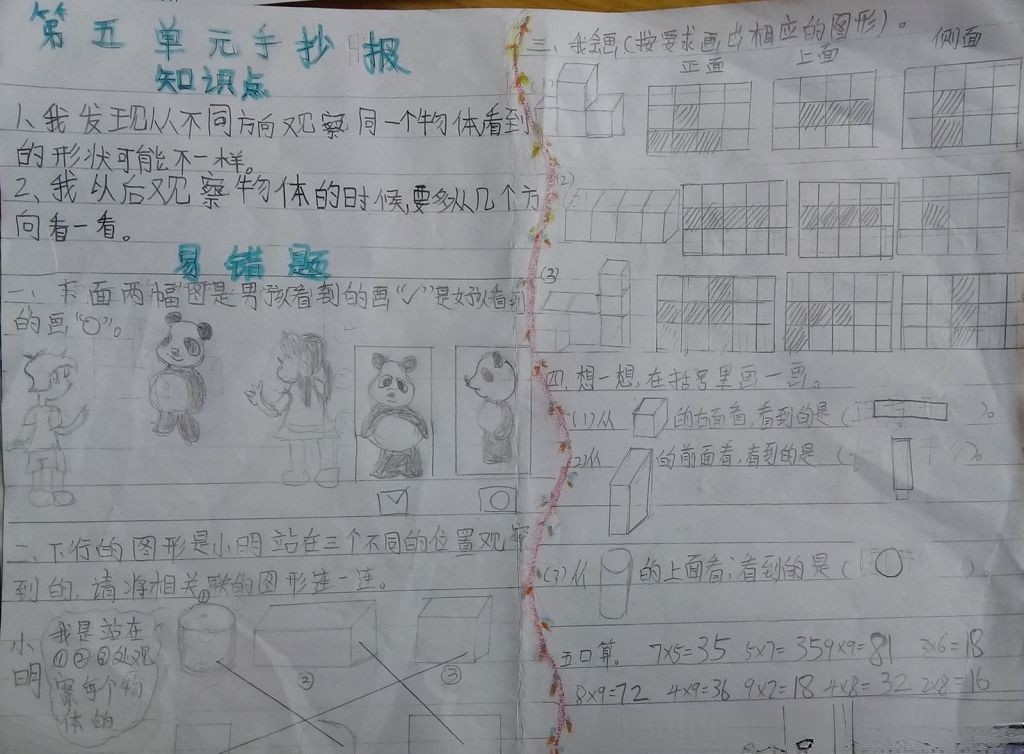 第五单元手抄报
知识点
1、我发现从不同方向观察同一个物体看到
的形状可能不一样。
2、我以后观察物体的时候,要多从几个方
向看一看。
易错题
一、下面两幅图是男孩看到的画“✓”是女孩看到
的画“O”。
二、下行的图形是小明站在三个不同的位置观察
到的,请将相关联的图形连一连。
小明
我是站在
①②③处观
察每个物
体的
①
②
③
三、我会画(按要求画出相应的图形)。
正面 上面 侧面
(1)
(2)
(3)
四、想一想,在括号里画一画。
(1)从 的右面看,看到的是( )。
(2)从 的前面看,看到的是( )。
(3)从 的上面看,看到的是( )。
五口算。 7×5=35 5×7=35 9×9=81 3×6=18
8×9=72 4×9=36 9×2=18 4×8=32 2×8=16